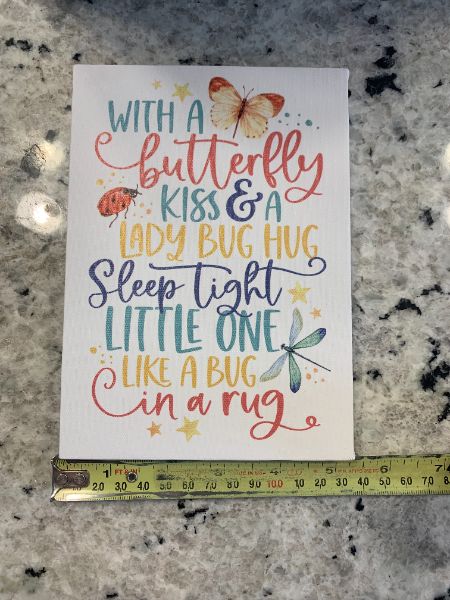 WITH A
butterfly
KISS & A
LADY BUG HUG
Sleep Tight
LITTLE ONE
LIKE A BUG
in a rug
1 4 5 6 7
2.0 3.0 4.0 10.0 2.0 3.0 4.0 5.0 6.0 7.0